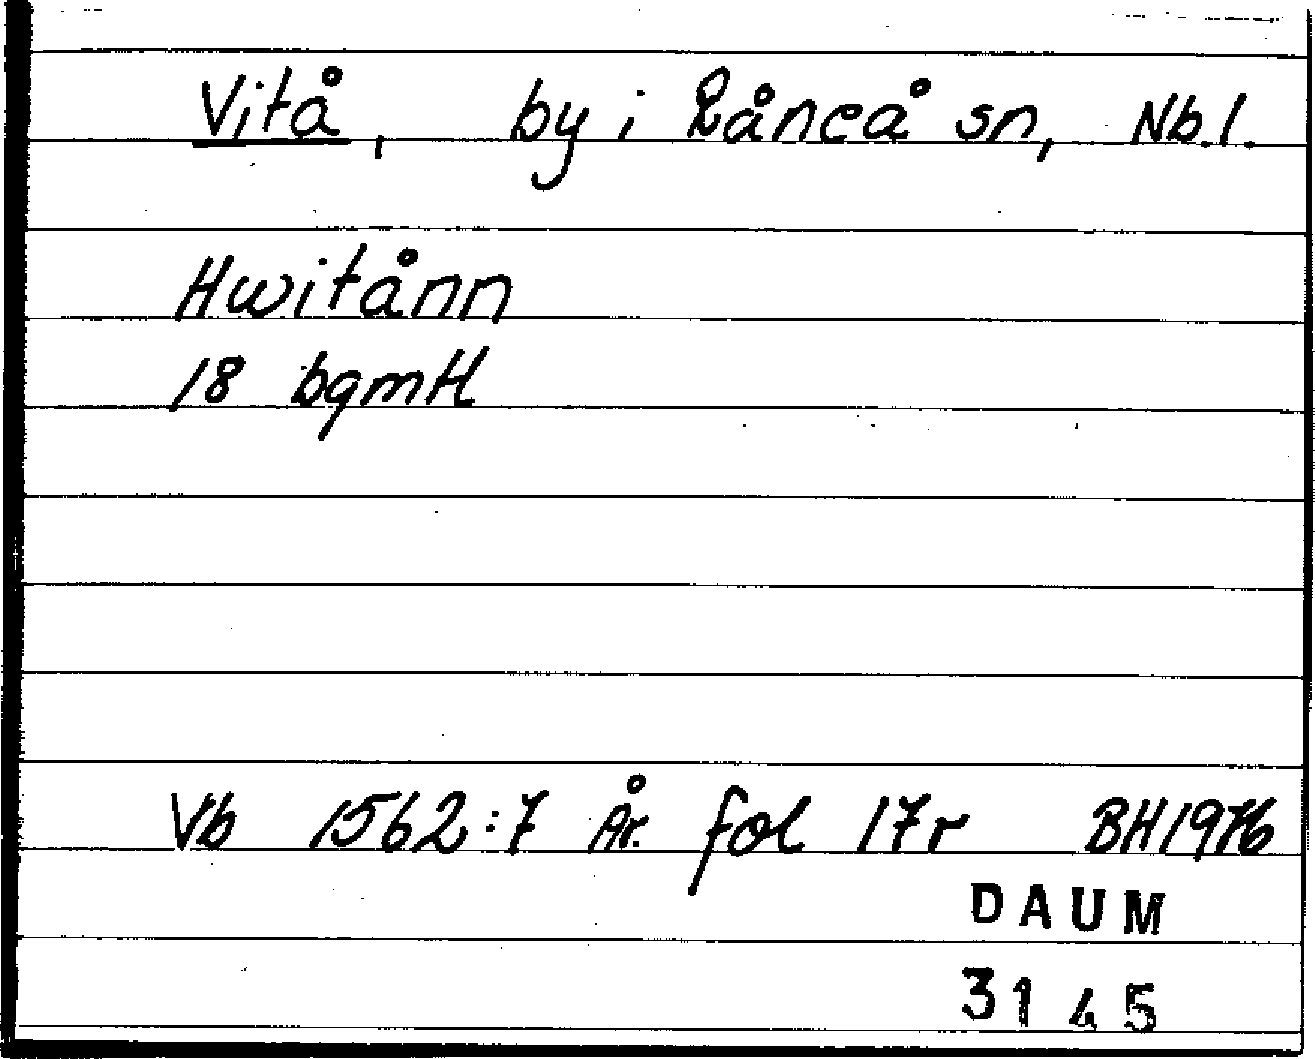 Vitå, by i Råneå sn, Nb.l.
Hwitånn
18 bqmH
Vb 1562:7 År. fol 17r BH1976
DAUM
3145